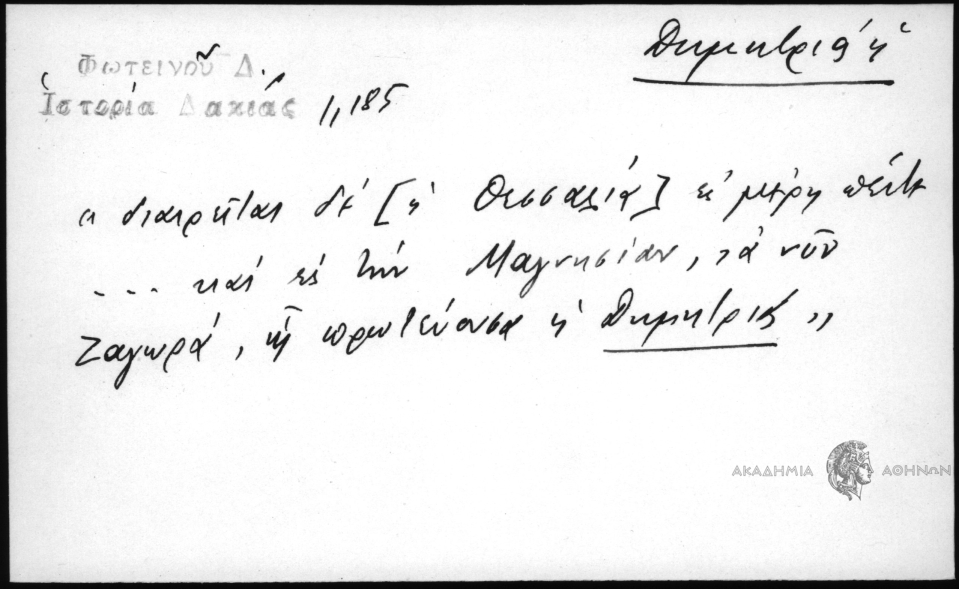 Δημητριάς ἡ
Φωτεινοῦ Δ.
Ἱστορία Δακίας 1,185
" διαιρεῖται δέ [ἡ Θεσσαλία] εἰς μέρη πέντε
.... καί εἰς τήν Μαγνησίαν, τά νῦν
Ζαγωρά, ἧς πρωτεύουσα ἡ Δημητριάς "
ΑΚΑΔΗΜΙΑ ΑΘΗΝΩΝ